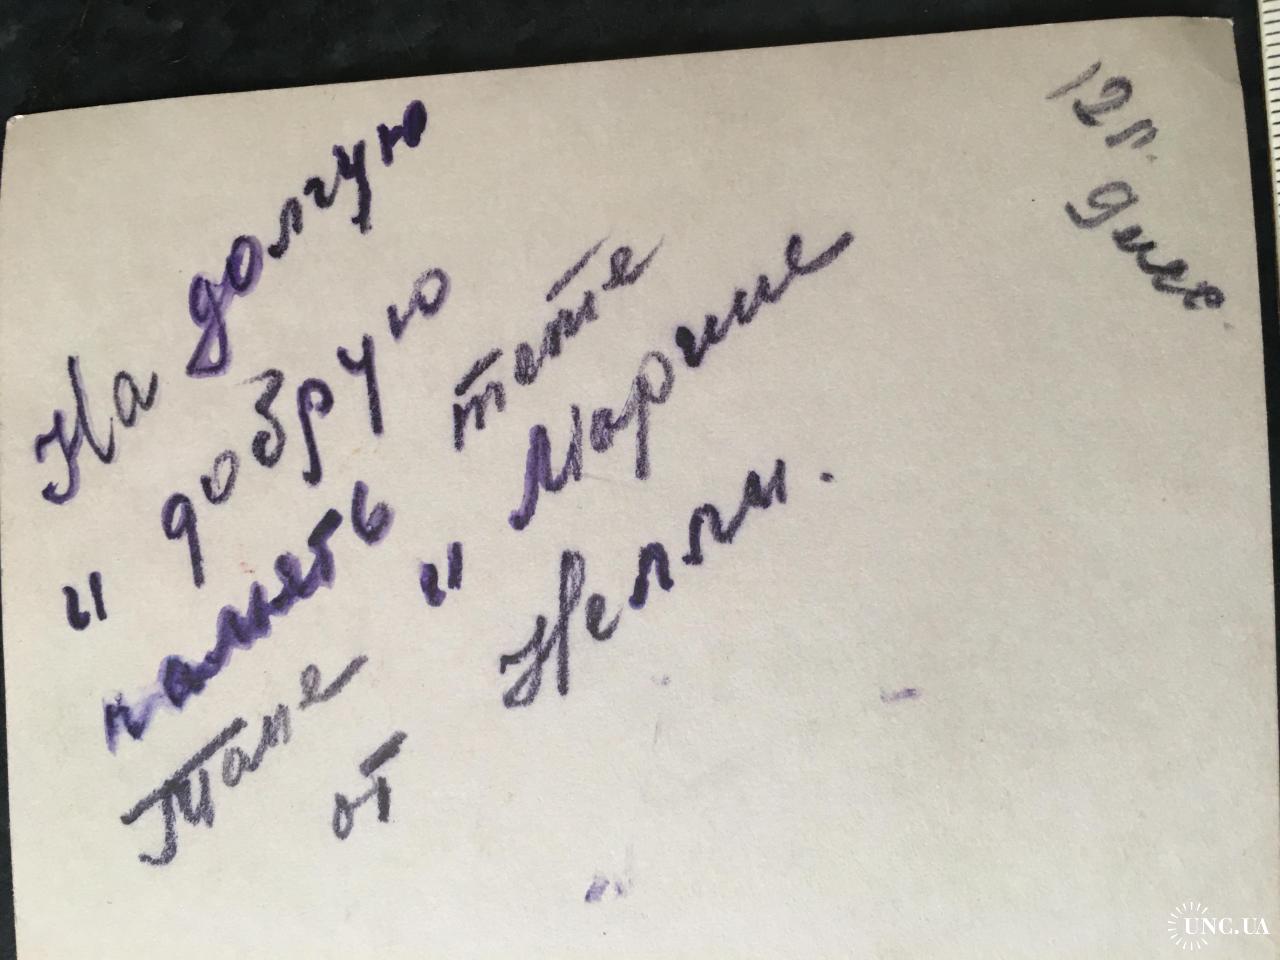 На долгую
" добрую
память тете
Тане " Марине
от Нелли.
12 л.
9 мес.
UNC.UA